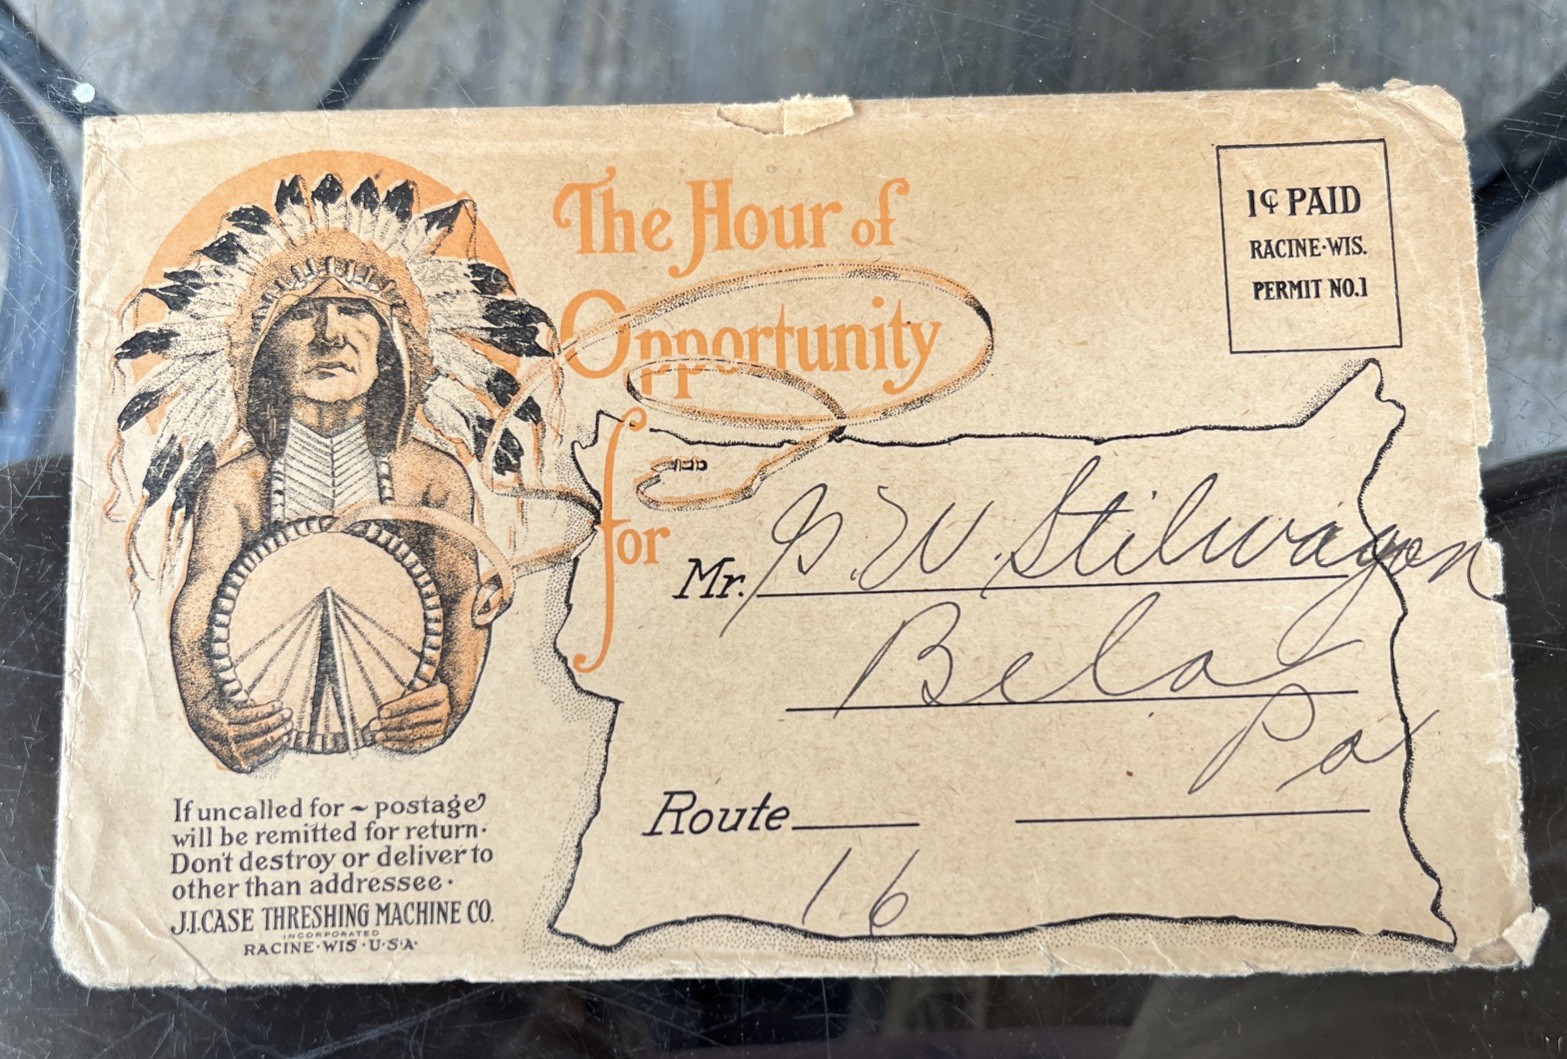 The Hour of
Opportunity
for
1¢ PAID
RACINE·WIS.
PERMIT NO.1
Mr. G. W. Stilwagon
Bela
Pa
Route
16
If uncalled for ~ postage
will be remitted for return·
Don't destroy or deliver to
other than addressee·
J.I.CASE THRESHING MACHINE CO.
INCORPORATED
RACINE·WIS·U·S·A·